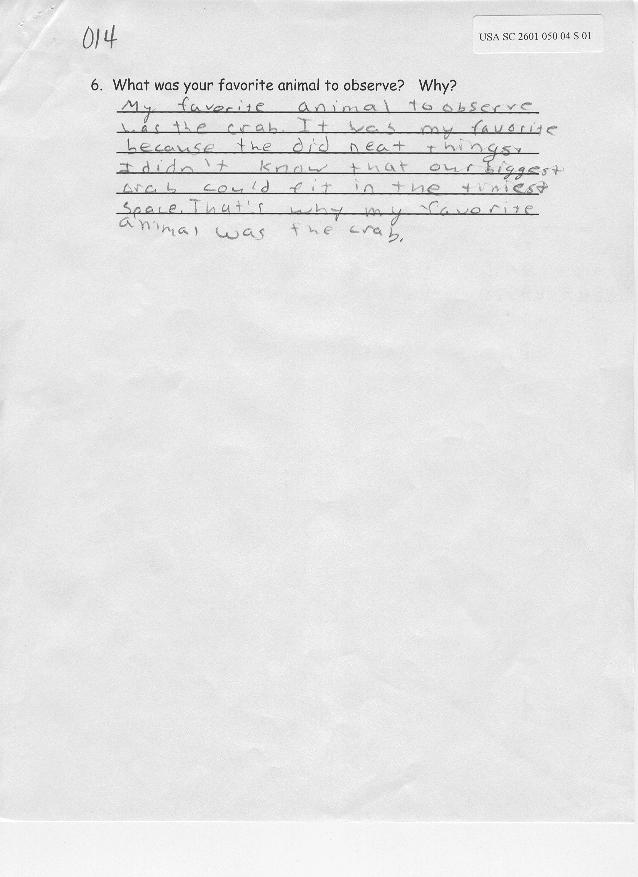 014
USA SC 2601 050 04 S 01
6. What was your favorite animal to observe? Why?
My favorite animal to observe
was the crab. It was my favorite
because the did neat things.
I didn't know that our biggest
crab could fit in the tiniest
space. That's why my favorite
animal was the crab.